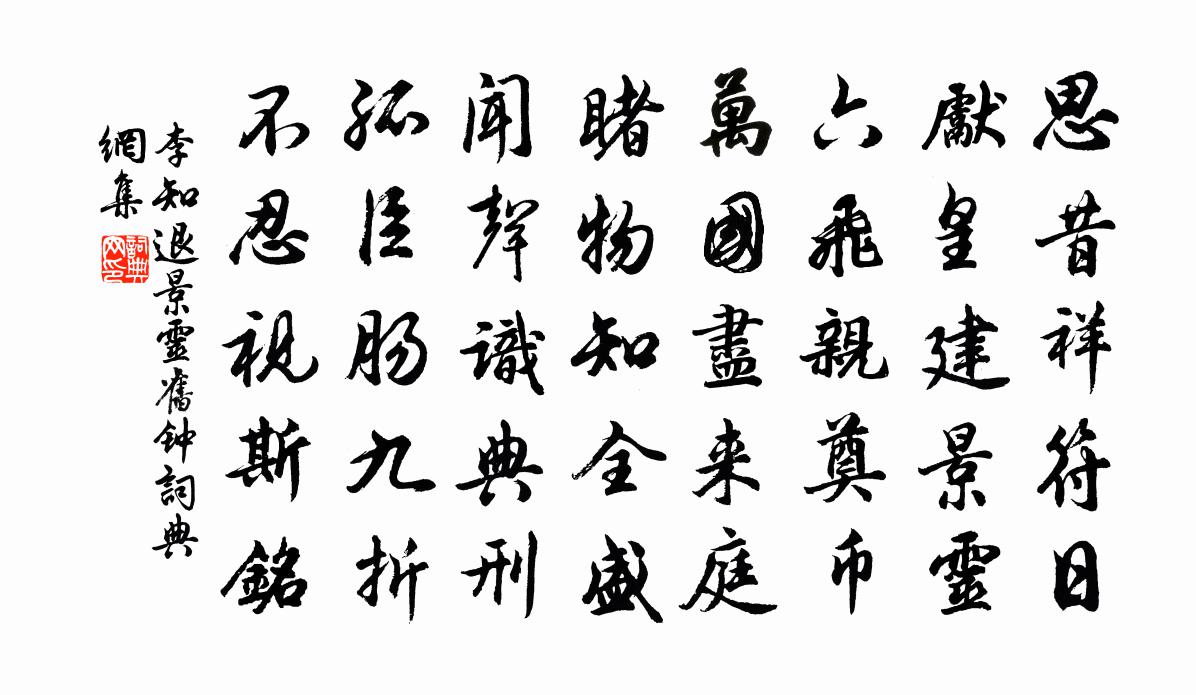 思昔祥符日
獻皇建景靈
六飛親奠币
萬國盡来庭
睹物知全盛
闻聲識典刑
孤臣肠九折
不忍視斯銘
李知退景靈舊钟詞典
網集
詞典网印